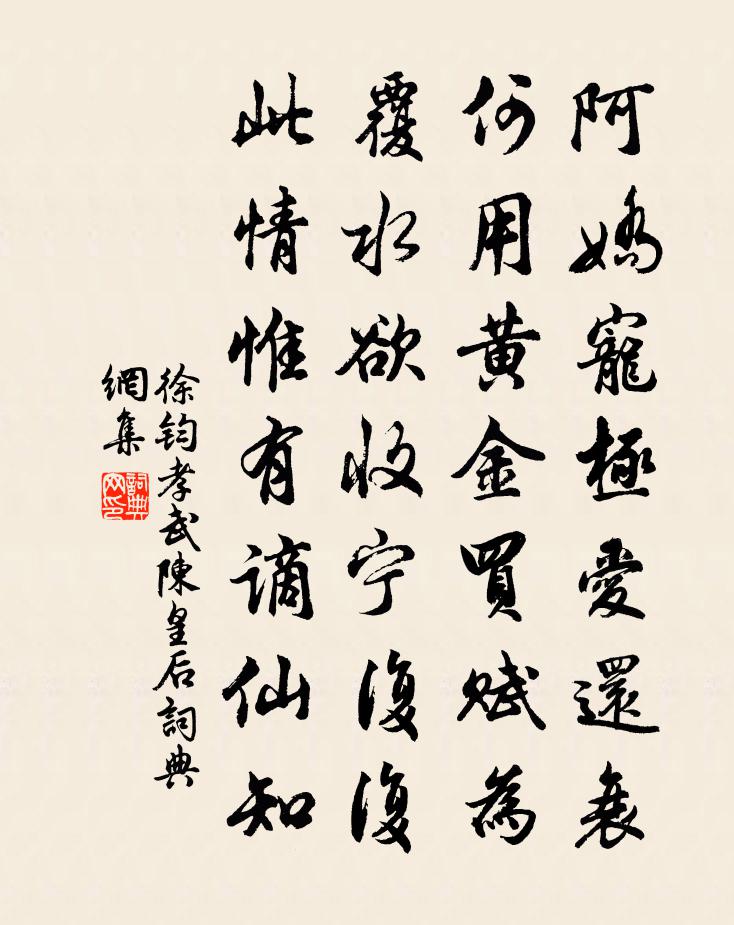 阿嬌寵極愛還衰
何用黃金買賦為
覆水欲收宁復復
此情惟有謫仙知
徐鈞孝武陳皇后詞典
網集
詞典网印